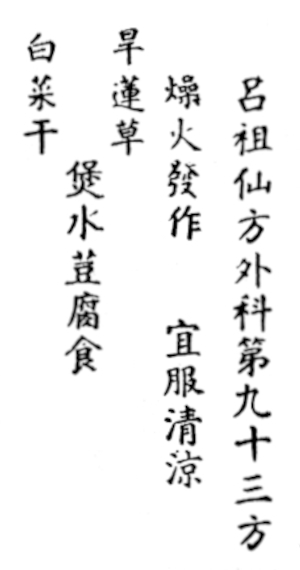 呂祖仙方外科第九十三方
燥火發作　宜服清涼
旱蓮草
煲水荳腐食
白菜干